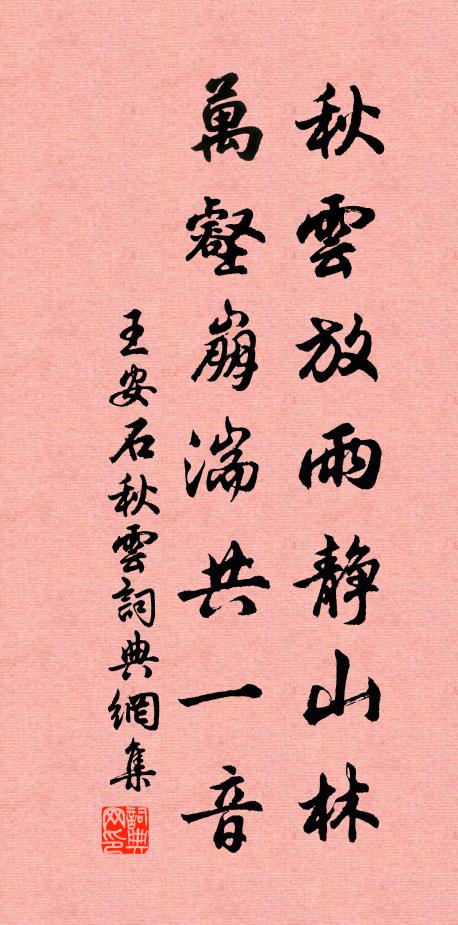 秋雲放雨静山林
萬壑崩湍共一音
王安石秋雲詞典網集
詞典網印